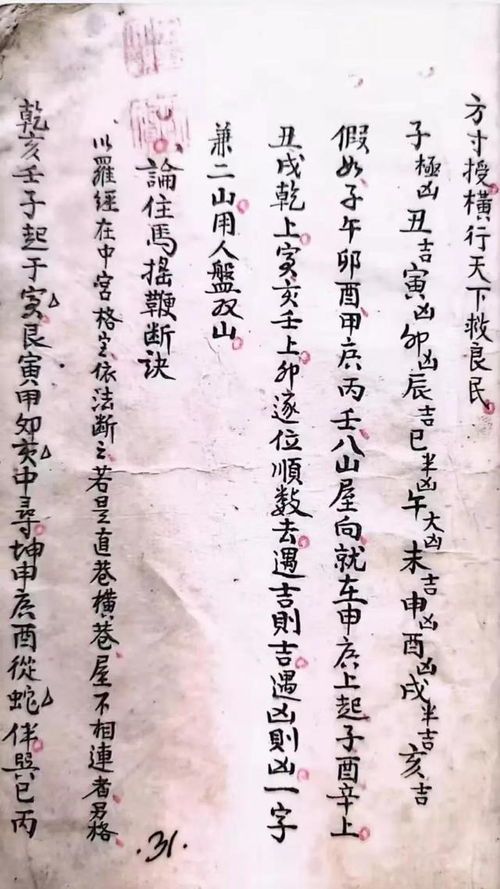 方寸授橫行天下救良民
子極凶丑吉寅凶卯凶辰吉巳半凶午大凶未吉申凶酉凶戌半吉亥吉
假如子午卯酉甲庚丙壬八山屋向就在申庚上起子酉辛上
丑戌乾上寅亥壬上卯逐位順數去遇吉則吉遇凶則凶一字
兼二山用人盤双山
論住馬搖鞭断诀
以羅經在中宮格定依法斷之若是直巷橫巷屋不相連者另格
乾亥壬子起于寅艮寅甲卯亥中尋坤申庚酉從蛇伴巽巳丙
.31.